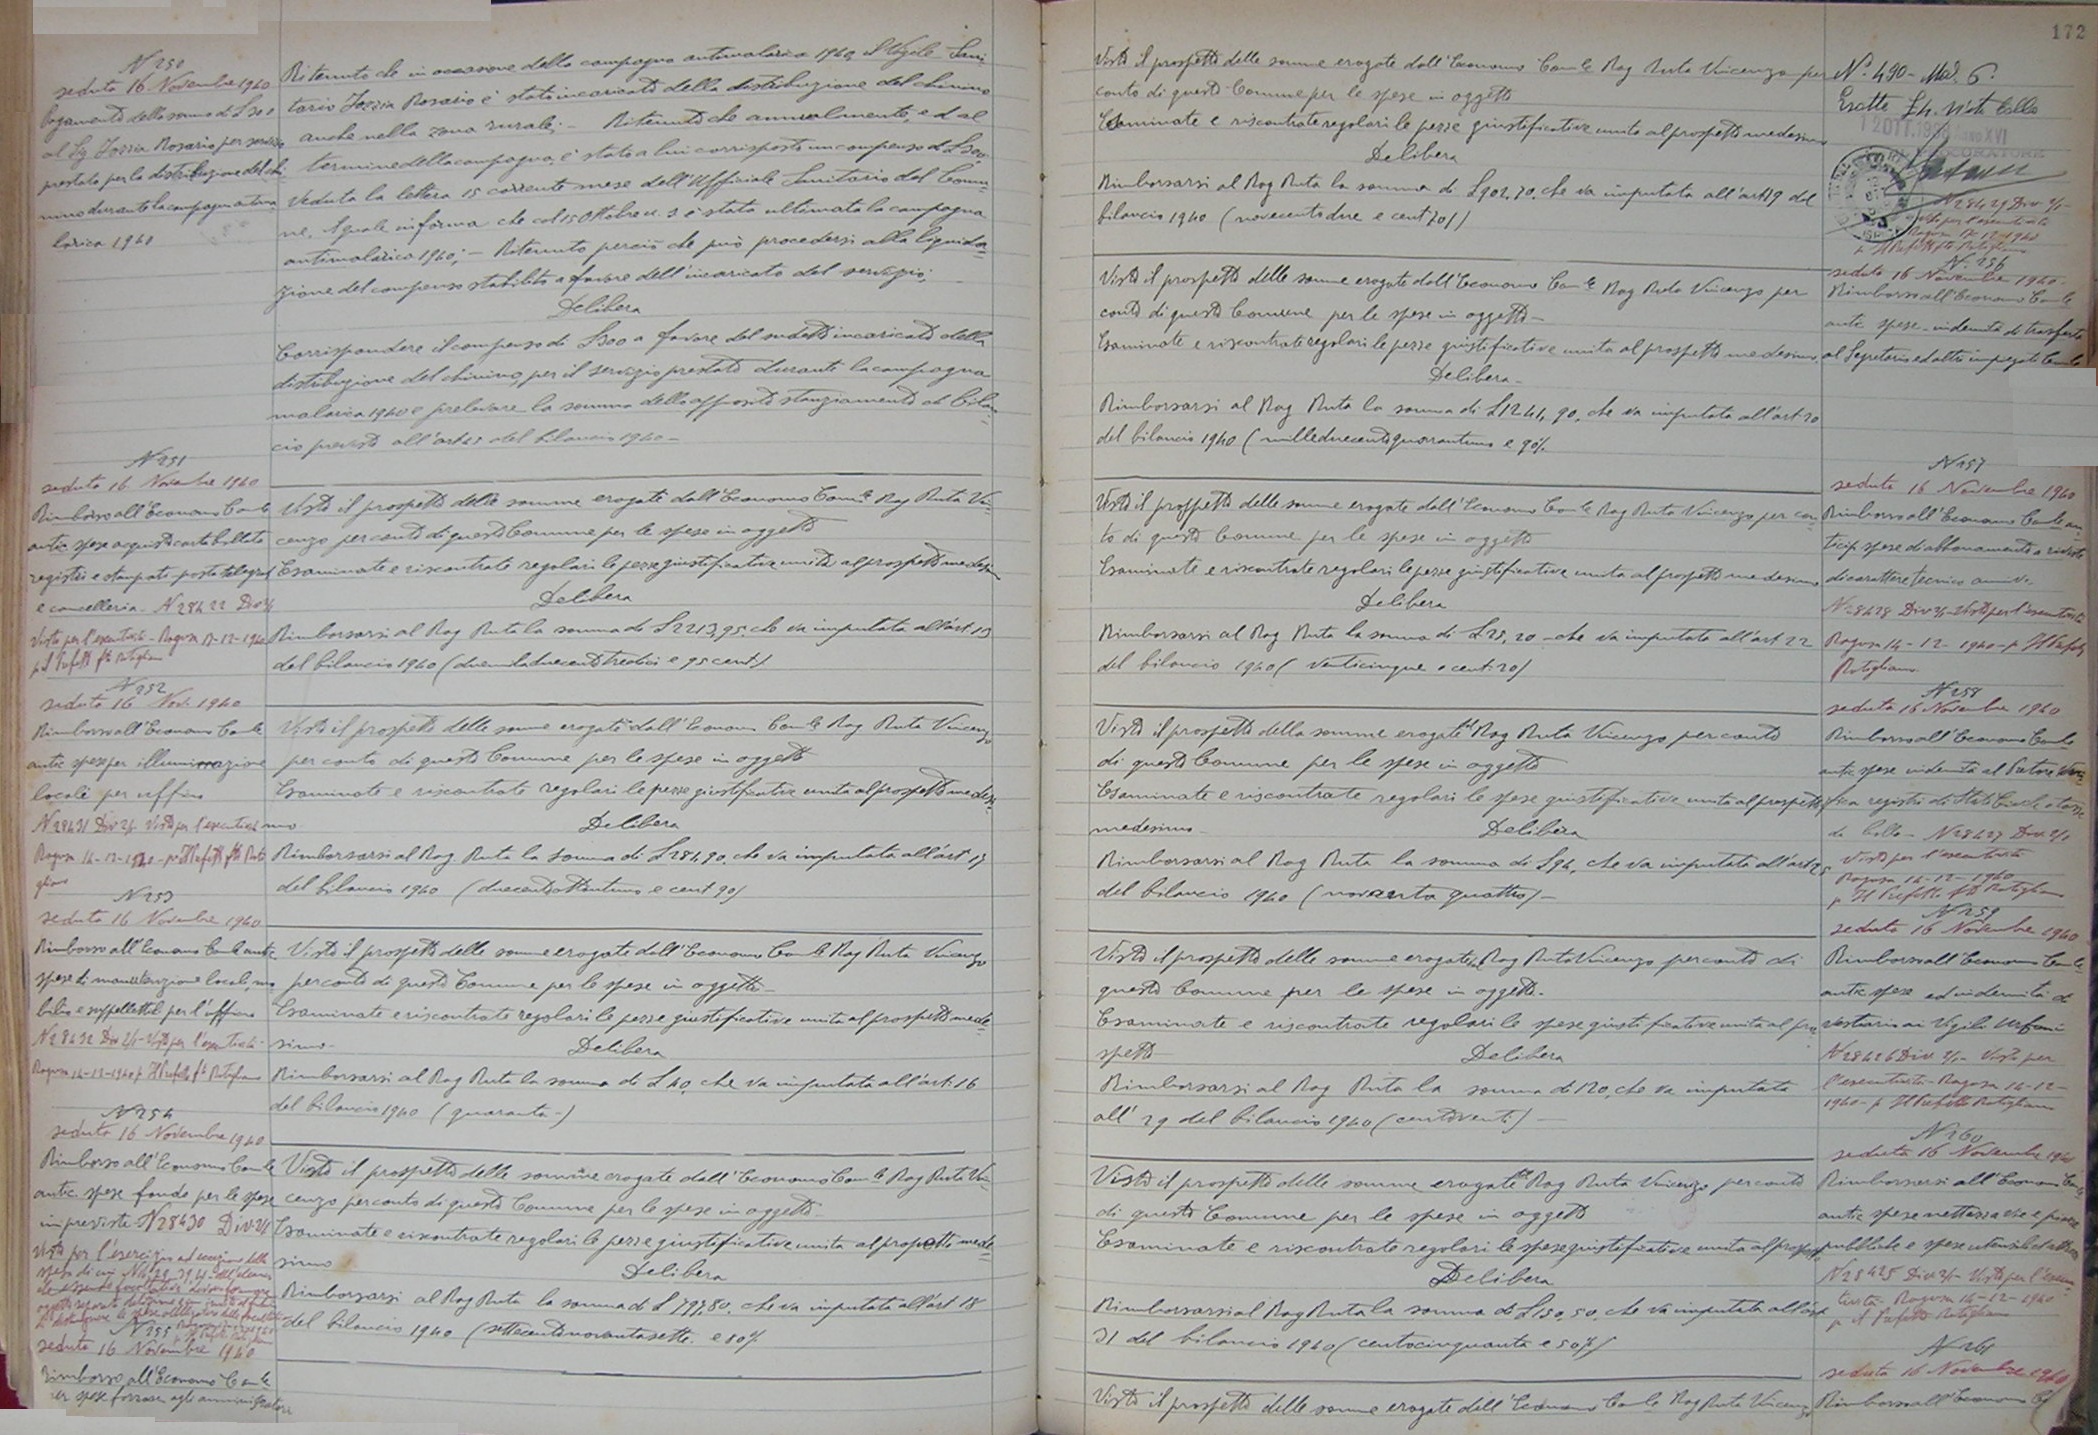 N 250
seduta 16 Novembre 1940
Pagamento della somma di L 300
al Sig Iozzia Rosario per servizio
prestato per la distribuzione del chi
nino durante la campagna antima
larica 1940
Ritenuto che in occasione della campagna antimalarica 1940, il Vigile Sani
tario Iozzia Rosario è stato incaricato della distribuzione del chinino
anche nella zona rurale; - Ritenuto che annualmente, e al
termine della campagna, è stato a lui corrisposto un compenso di L 300;
Veduta la lettera 15 corrente mese dell'Ufficiale Sanitario del Comu=
ne, il quale informa che col 15 Ottobre u. s. è stata ultimata la campagna
antimalarica 1940; - Ritenuto perciò che può procedersi alla liquida=
zione del compenso stabilito a favore dell'incaricato del servizio;
Delibera
Corrispondere il compenso di L 300 a favore del sudetto incaricato della
distribuzione del chinino, per il servizio prestato durante la campagna
malarica 1940 e prelevare la somma dello apposito stanziamento di bilan
cio previsto all'art del bilancio 1940 -
N 251
seduta 16 Novembre 1940
Rimborso all'Economo Com le
antic. spese acquisto carta bollata
registri e stampati posta telegraf
e cancelleria - N 28422 Div 2/1
Visto per l'esecutività - Ragusa 17-12-1940
p Il Prefetto fto Rotigliano
Visto il prospetto delle somme erogate dall'Economo Com le Rag Ruta Vin=
cenzo per conto di questo Comune per le spese in oggetto
Esaminate e riscontrate regolari le pezze giustificative unite al prospetto medesim
Delibera
Rimborsarsi al Rag Ruta la somma di L 2213,95, che va imputata all'art. 13
del bilancio 1940 (duemiladuecentotredici e 95 cent)
N 252
seduta 16 Nov. 1940
Rimborso all'Economo Com le
antic spese per illuminazione
locali per uffici
N 28431 Div 2/1. Visto per l'esecutività
Ragusa 14-12-1940 - p Il Prefetto fto Roti
gliano
Visto il prospetto delle somme erogate dall'Economo Com le Rag Ruta Vincenzo
per conto di questo Comune per le spese in oggetto
Esaminate e riscontrate regolari le pezze giustificative unite al prospetto medesi=
mo
Delibera
Rimborsarsi al Rag. Ruta la somma di L 281,90, che va imputata all'art 17
del bilancio 1940 (duecentottantuno e cent 90)
N 253
seduta 16 Novembre 1940
Rimborso all'Economo Com le antic
spese di manutenzione locali, mo
bilio e suppellettili per l'ufficio
N 28432 Div 2/1 - Visto per l'esecutività -
Ragusa 14-12-1940 p Il Prefetto fto Rotigliano
Visto il prospetto delle somme erogate dall'Economo Com le Rag Ruta Vincenzo
per conto di questo Comune per le spese in oggetto -
Esaminate e riscontrate regolari le pezze giustificative unite al prospetto mede
simo -
Delibera
Rimborsarsi al Rag Ruta la somma di L 40, che va imputata all'art. 16
del bilancio 1940 (quaranta -)
N 254
seduta 16 Novembre 1940
Rimborso all'Economo Com le
antic. spese fondo per le spese
impreviste - N 28430 Div 2/1
Visto il prospetto delle somme erogate dall'Economo Com le Rag Ruta Vin=
cenzo per conto di questo Comune per le spese in oggetto
Esaminate e riscontrate regolari le pezze giustificative unite al prospetto mede
simo
Delibera
Rimborsarsi al Rag Ruta la somma di L 797,80, che va imputata all'art 18
del bilancio 1940 (settecentonovantasette e 80%
N 255
seduta 16 Novembre 1940
Rimborso all'Economo Com le
per spese forzose agli amministratori
172
Visto il prospetto delle somme erogate dall'Economo Com le Rag Ruta Vincenzo per
conto di questo Comune per le spese in oggetto
Esaminate e riscontrate regolari le pezze giustificative unite al prospetto medesimo
Delibera
Rimborsarsi al Rag Ruta la somma di L 902,70, che va imputata all'art 19 del
bilancio 1940 (novecentodue e cent 70)
N. 490 - Mod. 6.
N 28429 Div 2/1 -
Visto per l'esecutività
p Il Prefetto fto Rotigliano
N. 256
seduta 16 Novembre 1940 -
Rimborso all'Economo Com le
antic spese - indennità di trasferta
al Segretario ed altri impiegati Com le
Visto il prospetto delle somme erogate dall'Economo Com le Rag Ruta Vincenzo per
conto di questo Comune per le spese in oggetto -
Esaminate e riscontrate regolari le pezze giustificative unite al prospetto medesimo.
Delibera -
Rimborsarsi al Rag Ruta la somma di L 1241,90, che va imputata all'art 20
del bilancio 1940 (milleduecentoquarantuno e 90%.
N 257
seduta 16 Novembre 1940
Rimborso all'Economo Com le an
ticip. spese di abbonamento a riviste
di carattere tecnico ammvo.
N 28428 Div 2/1 - Visto per l'esecutività
Ragusa 14-12-1940 - p Il Prefetto
Rotigliano
Visto il prospetto delle somme erogate dall'Economo Com le Rag Ruta Vincenzo per con=
to di questo Comune per le spese in oggetto
Esaminate e riscontrate regolari le pezze giustificative unite al prospetto medesimo
Delibera
Rimborsarsi al Rag Ruta la somma di L 25,20 - che va imputata all'art 22
del bilancio 1940 (venticinque e cent. 20)
N 258
seduta 16 Novembre 1940
Rimborso all'Economo Com le
antic spese indennità al Pretore Veri=
fica registri di Stato Civile e tasse
di bollo - N 28427 Div. 2/1
Visto per l'esecutività
Ragusa 14-12-1940
p Il Prefetto fto Rotigliano
Visto il prospetto della somme erogate dal Rag Ruta Vincenzo per conto
di questo Comune per le spese in oggetto
Esaminate e riscontrate regolari le spese giustificative unite al prospetto
medesimo -
Delibera
Rimborsarsi al Rag Ruta la somma di L 94, che va imputata all'art 25
del bilancio 1940 (novanta quattro) -
N 259
seduta 16 Novembre 1940
Rimborso all'Economo Com le
antic spese ed indennità di
vestiario ai Vigili Urbani
N 28426 Div 2/1 - Visto per
l'esecutività - Ragusa 14-12-
1940 - p Il Prefetto Rotigliano
Visto il prospetto delle somme erogate dal Rag Ruta Vincenzo per conto di
questo Comune per le spese in oggetto -
Esaminate e riscontrate regolari le spese giustificative unite al pro
spetto
Delibera
Rimborsarsi al Rag Ruta la somma di 120, che va imputata
all' 29 del bilancio 1940 (centoventi) -
N 260
seduta 16 Novembre 1940
Rimborsarsi all'Economo Com le
antic spese nettezza vie e piazze
pubbliche e spese utensili ed attrezzi
N 28425 Div 2/1 - Visto per l'esecu
tività - Ragusa 14-12-1940
p Il Prefetto Rotigliano
Visto il prospetto delle somme erogate dal Rag Ruta Vincenzo per conto
di questo Comune per le spese in oggetto
Esaminate e riscontrate regolari le spese giustificative unite al prospetto
Delibera
Rimborsarsi al Rag Ruta la somma di L 150,50, che va imputata all'art
31 del bilancio 1940 (centocinquanta e 50%)
N 261
seduta 16 Novembre 1940
Rimborso all'Economo Co
Visto il prospetto delle somme erogate dall'Economo Com le Rag Ruta Vincenzo